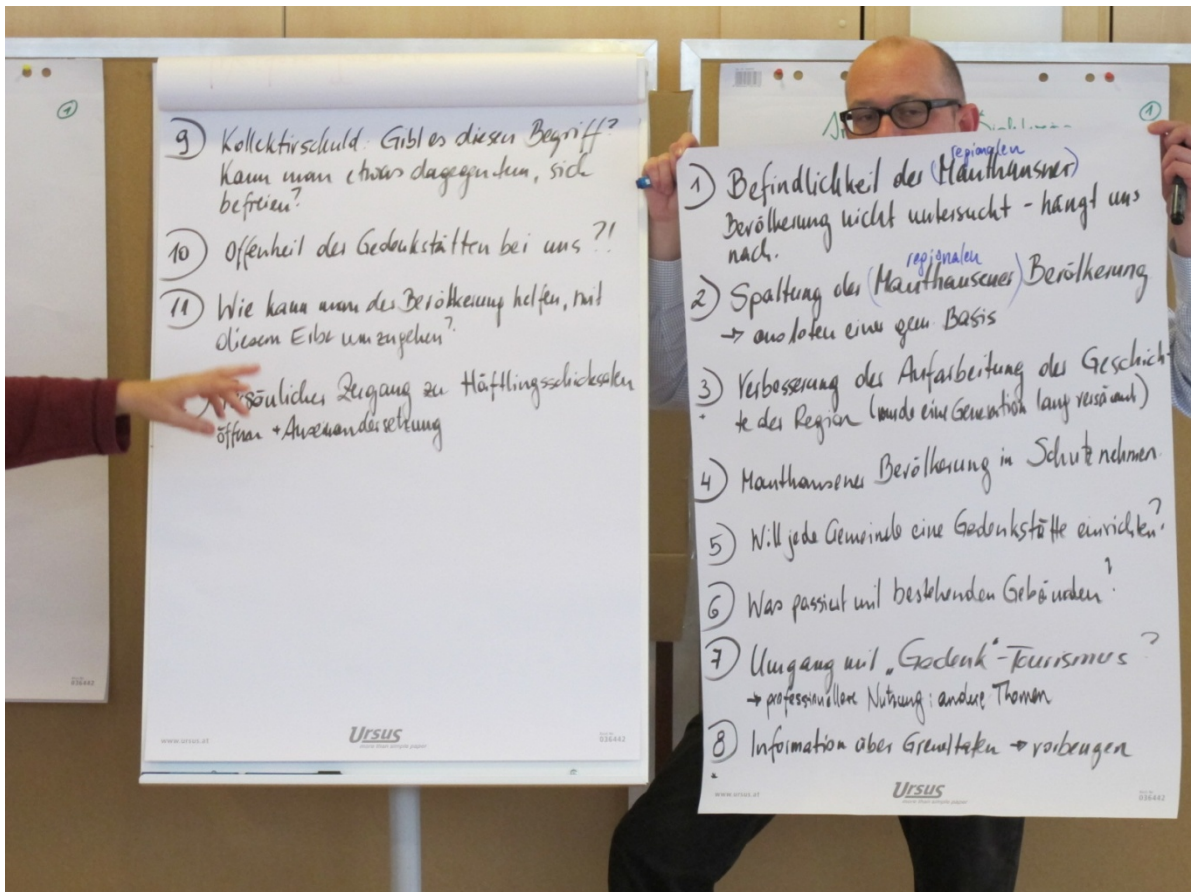 ①
9) Kollektivschuld: Gibt es diesen Begriff?
Kann man etwas dagegen tun, sich
befreien?
10) Offenheit der Gedenkstätten bei uns?!
11) Wie kann man der Bevölkerung helfen, mit
diesem Erbe umzugehen?
Persönlicher Zugang zu Häftlingsschicksalen
öffnen + Auseinandersetzung
www.ursus.at
Ursus
more than simple paper
036442
036442
①
regionalen
1) Befindlichkeit der (Mauthausner)
Bevölkerung nicht untersucht - hängt uns
nach.
regionalen
2) Spaltung der (Mauthausener) Bevölkerung
→ ausloten einer gem. Basis
3) Verbesserung der Aufarbeitung der Geschich-
te der Region (wurde eine Generation lang versäumt)
4) Mauthausener Bevölkerung in Schutz nehmen
5) Will jede Gemeinde eine Gedenkstätte einrichten?
6) Was passiert mit bestehenden Gebäuden?
7) Umgang mit „Gedenk"-Tourismus?
→ professionellere Nutzung: andere Themen
8) Information über Greueltaten → vorbeugen
www.ursus.at
Ursus
more than simple paper
036442